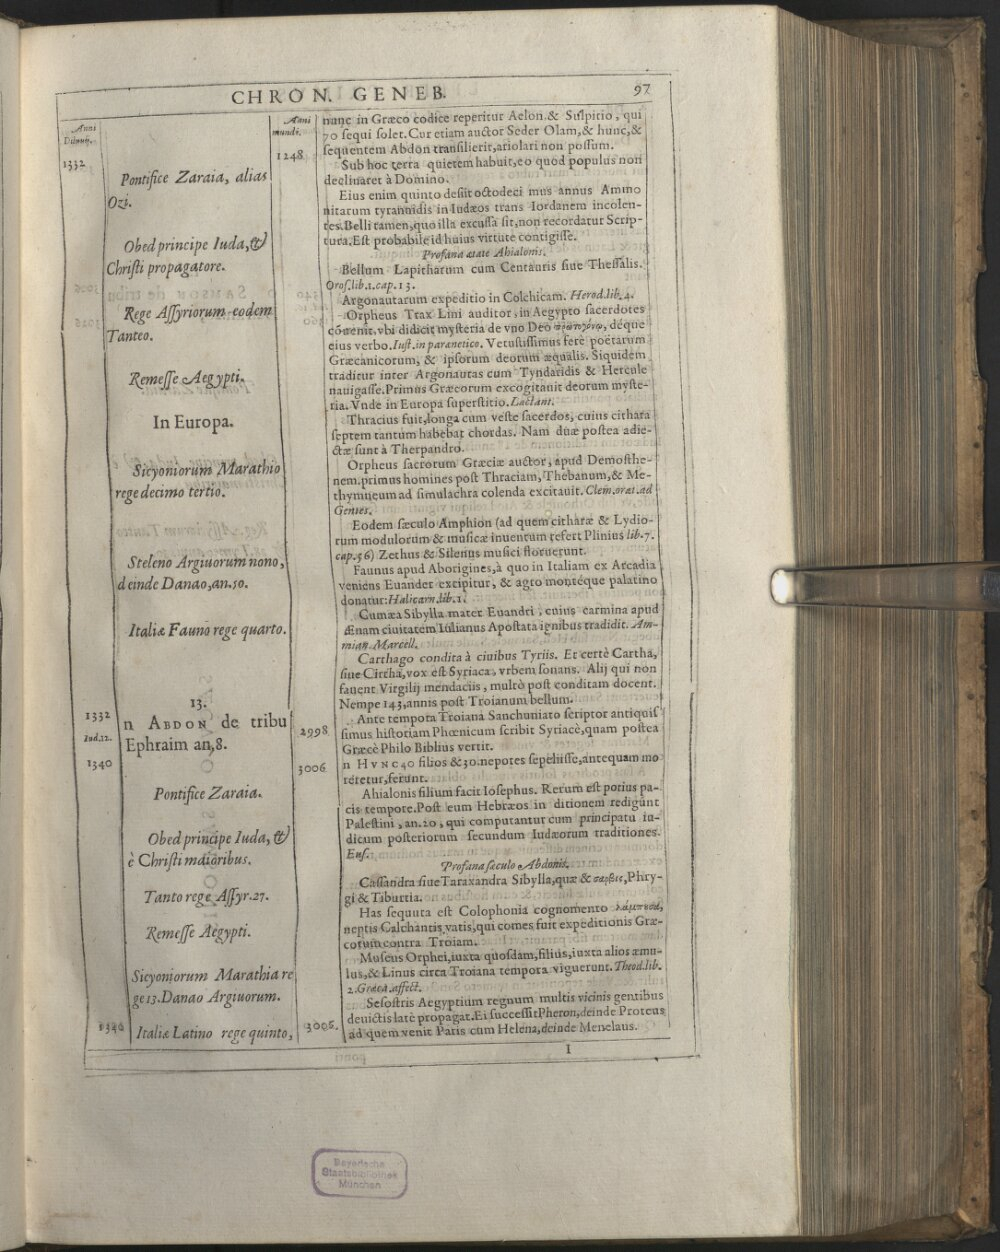 CHRON. GENEB. 97
Anni
Diluuij.
1332
Pontifice Zaraia, alias
Ozi.
Obed principe Iuda, &
Christi propagatore.
Rege Assyriorum eodem
Tanteo.
Remesse Aegypti.
In Europa.
Sicyoniorum Marathio
rege decimo tertio.
Steleno Argiuorum nono,
deinde Danao, an. 50.
Italiæ Fauno rege quarto.
13.
1332
Iud. 12.
1340
n ABDON de tribu
Ephraim an, 8.
Pontifice Zaraia.
Obed principe Iuda, &
è Christi maioribus.
Tanto rege Assyr. 27.
Remesse Aegypti.
Sicyoniorum Marathia re
ge 13. Danao Argiuorum.
1340
Italiæ Latino rege quinto,
Anni
mundi.
1248
2998
3006
3006.
nunc in Græco codice reperitur Aelon & Sulpitio, qui
70 sequi solet. Cur etiam auctor Seder Olam, & hunc, &
sequentem Abdon transilierit, ariolari non possum.
Sub hoc terra quietem habuit, eo quod populus non
declinaret à Domino.
Eius enim quinto desiit octodeci mus annus Ammo
nitarum tyrannidis in Iudæos trans Iordanem incolen-
tes. Belli tamen, quo illa excussa sit, non recordatur Scrip-
tura. Est probabile id huius virtute contigisse.
Profana ætate Ahialonis.
Bellum Lapitharum cum Centauris siue Thessalis.
Oros. lib. 1. cap. 13.
Argonautarum expeditio in Colchicam. Herod. lib. 4.
Orpheus Trax Lini auditor, in Aegypto sacerdotes
cōuenit, vbi didicit mysteria de vno Deo πρωτογόνῳ, déque
eius verbo. Iust. in parænetico. Vetustissimus ferè poëtarum
Græcanicorum, & ipsorum deorum æqualis. Siquidem
traditur inter Argonautas cum Tyndaridis & Hercule
nauigasse. Primus Græcorum excogitauit deorum myste-
ria. Vnde in Europa superstitio. Lactant.
Thracius fuit, longa cum veste sacerdos, cuius cithara
septem tantùm habebat chordas. Nam duæ postea adie-
ctæ sunt à Therpandro.
Orpheus sacrorum Græciæ auctor, apud Demosthe-
nem. primus homines post Thraciam, Thebanum, & Me-
thymneum ad simulachra colenda excitauit. Clem. orat. ad
Gentes.
Eodem sæculo Amphion (ad quem citharæ & Lydio-
rum modulorum & musicæ inuentum refert Plinius lib. 7.
cap. 56) Zethus & Silenus musici floruerunt.
Faunus apud Aborigines, à quo in Italiam ex Arcadia
veniens Euander excipitur, & agro montéque palatino
donatur: Halicarn. lib. 1.
Cumæa Sibylla mater Euandri, cuius carmina apud
Ænam ciuitatem Iulianus Apostata ignibus tradidit. Am-
mian. Marcell.
Carthago condita à ciuibus Tyriis. Et certè Cartha,
siue Cirtha, vox est Syriaca, vrbem sonans. Alij qui non
fauent Virgilij mendaciis, multò post conditam docent.
Nempe 143, annis post Troianum bellum.
Ante tempora Troiana Sanchuniato scriptor antiquis
simus historiam Phœnicum scribit Syriacè, quam postea
Græcè Philo Biblius vertit.
n HVNC 40 filios & 30. nepotes sepeliisse, antequam mo
reretur, ferunt.
Ahialonis filium facit Iosephus. Rerum est potius pa-
cis tempore. Post eum Hebræos in ditionem redigunt
Palestini, an. 20, qui computantur cum principatu iu-
dicum posteriorum secundum Iudæorum traditiones.
Eus.
Profana sæculo Abdonis.
Cassandra siue Taraxandra Sibylla, quæ & σαρβις, Phry-
gi & Tiburtia.
Has sequuta est Colophonia cognomento λάμπουσα,
neptis Calchantis vatis, qui comes fuit expeditionis Græ-
corum contra Troiam.
Museus Orphei, iuxta quosdam, filius, iuxta alios æmu-
lus, & Linus circa Troiana tempora viguerunt. Theod. lib.
2. Græca. affect.
Sesostris Aegyptium regnum multis vicinis gentibus
deuictis latè propagat. Ei successit Pheron, deinde Proteus
ad quem venit Paris cum Helena, deinde Menelaus.
I
Bayerische
Staatsbibliothek
München